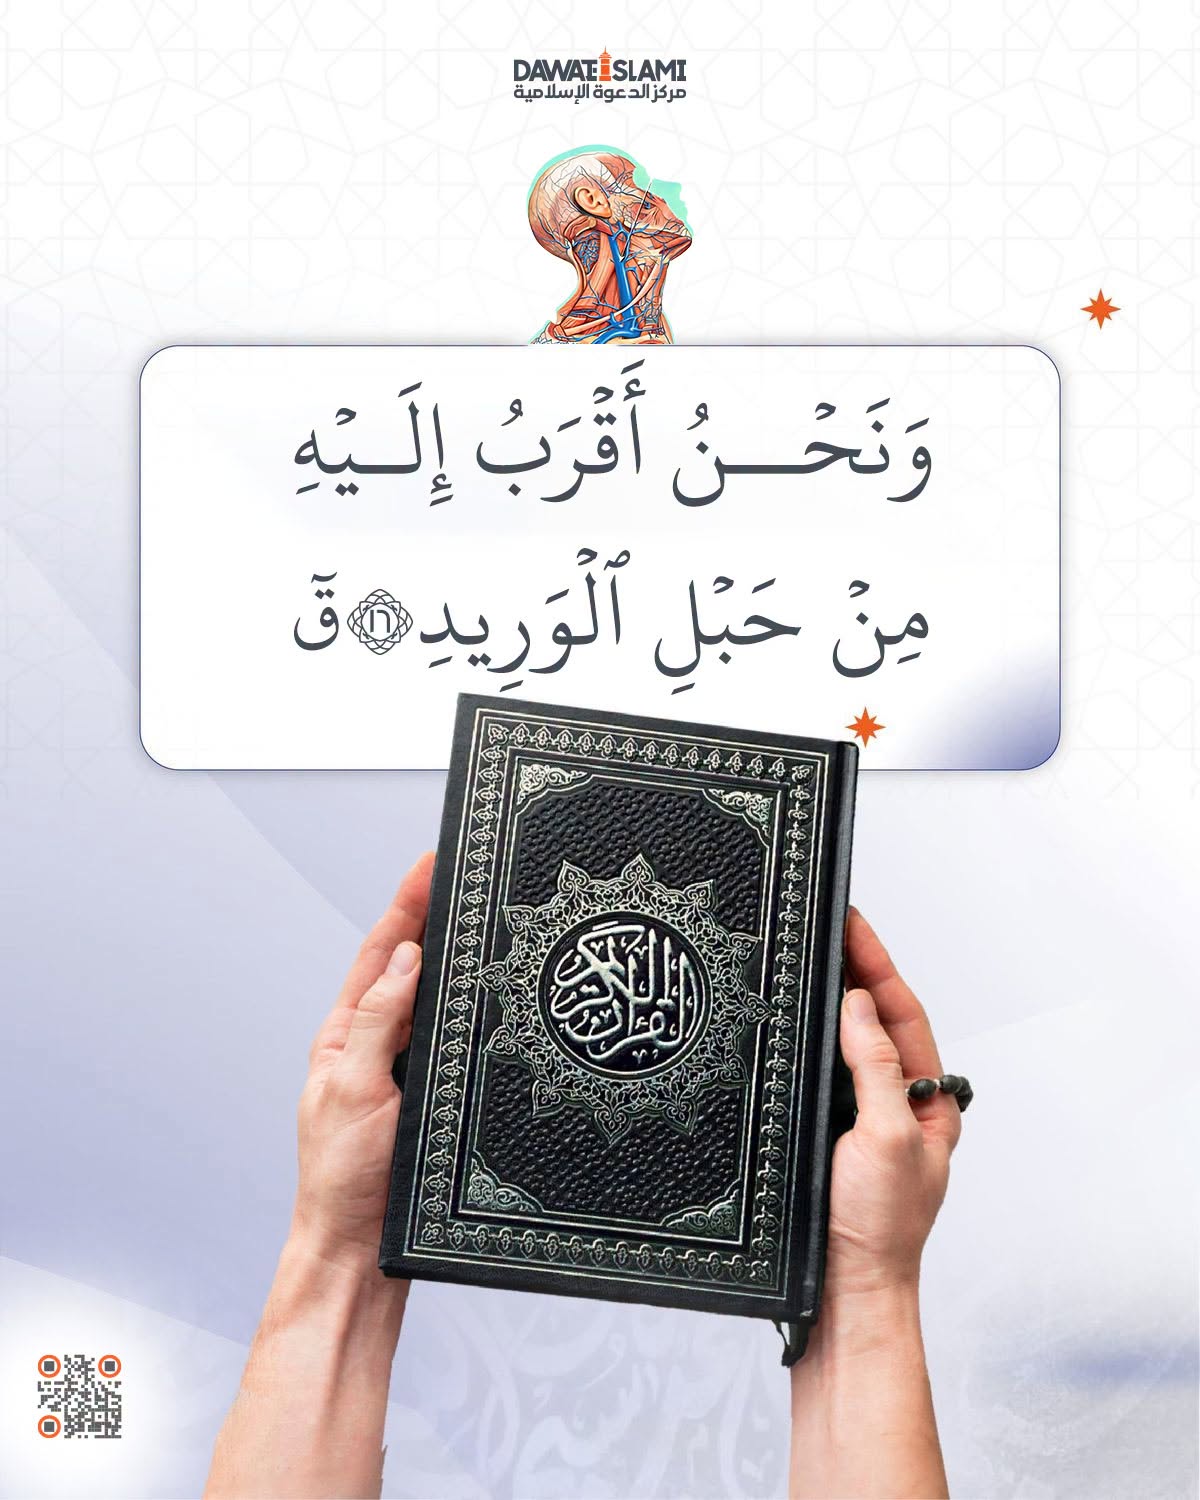 DAWATEISLAMI
مركز الدعوة الإسلامية
وَنَحْـــنُ أَقْرَبُ إِلَـــيْهِ
مِنْ حَبْلِ ٱلْوَرِيدِ ١٦ قٓ
القرآن الكريم